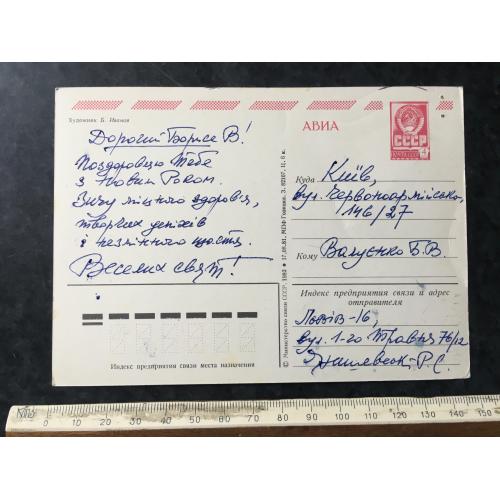 Художник Б. Иванов
Дорогий Борисе В!
Поздоровляю Тебе
з Новим Роком.
Зичу міцного здоров'я,
творчих успіхів
і незмінного щастя.
Веселих свят!
Индекс предприятия связи места назначения
© Министерство связи СССР, 1980
АВИА
СССР
4
Куда Київ,
вул. Червоноармійська,
146/27
Кому Валуєнко Б.В.
Индекс предприятия связи и адрес
отправителя
Львів-16,
вул. 1-го Травня 76/12
Р.С.
10 20 30 40 50 60 70 80 90 100 110 120 130 140 150